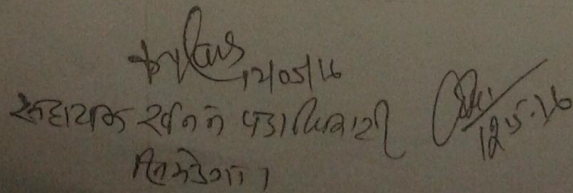 12/05/16
सहायक खनन पदाधिकारी
सिमडेगा।
12.5.16